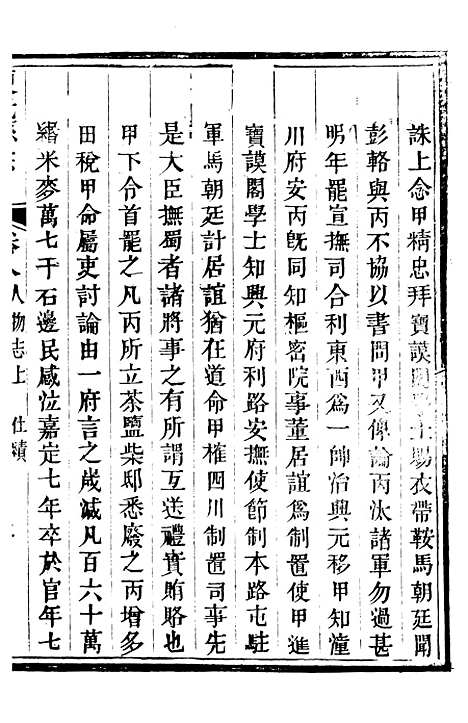 誅上念甲精忠拜寶謨閣學士賜衣帶鞍馬朝廷聞
彭輅與丙不協以書問甲又俾諭丙汰諸軍勿過甚
明年罷宣撫司合利東西為一帥治興元移甲知潼
川府安丙旣同知樞密院事董居誼為制置使甲進
寶謨閣學士知興元府利路安撫使節制本路屯駐
軍馬朝廷計居誼猶在道命甲權四川制置司事先
是大臣撫蜀者諸將事之有所謂互送禮實賄賂也
甲下令首罷之凡丙所立茶鹽柴邸悉廢之丙增多
田稅甲命屬吏討論由一府言之歲減凡百六十萬
緡米麥萬七千石邊民感泣嘉定七年卒於官年七
卷八人物志上 仕績